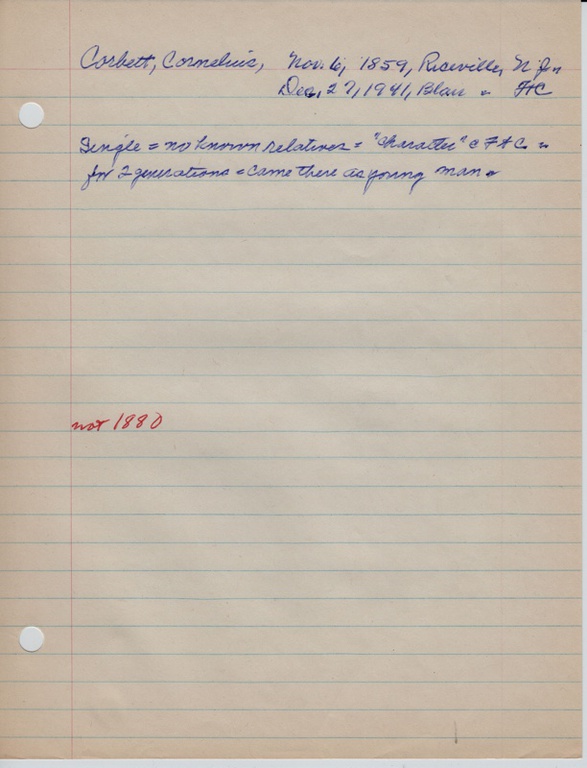 Corbett, Cornelius, Nov. 6, 1859, Riceville, N.J.
Dec, 27, 1941, Blair = FtC
Single = no known relatives = "character" @ FtC =
for 2 generations = came there as young man.
not 1880